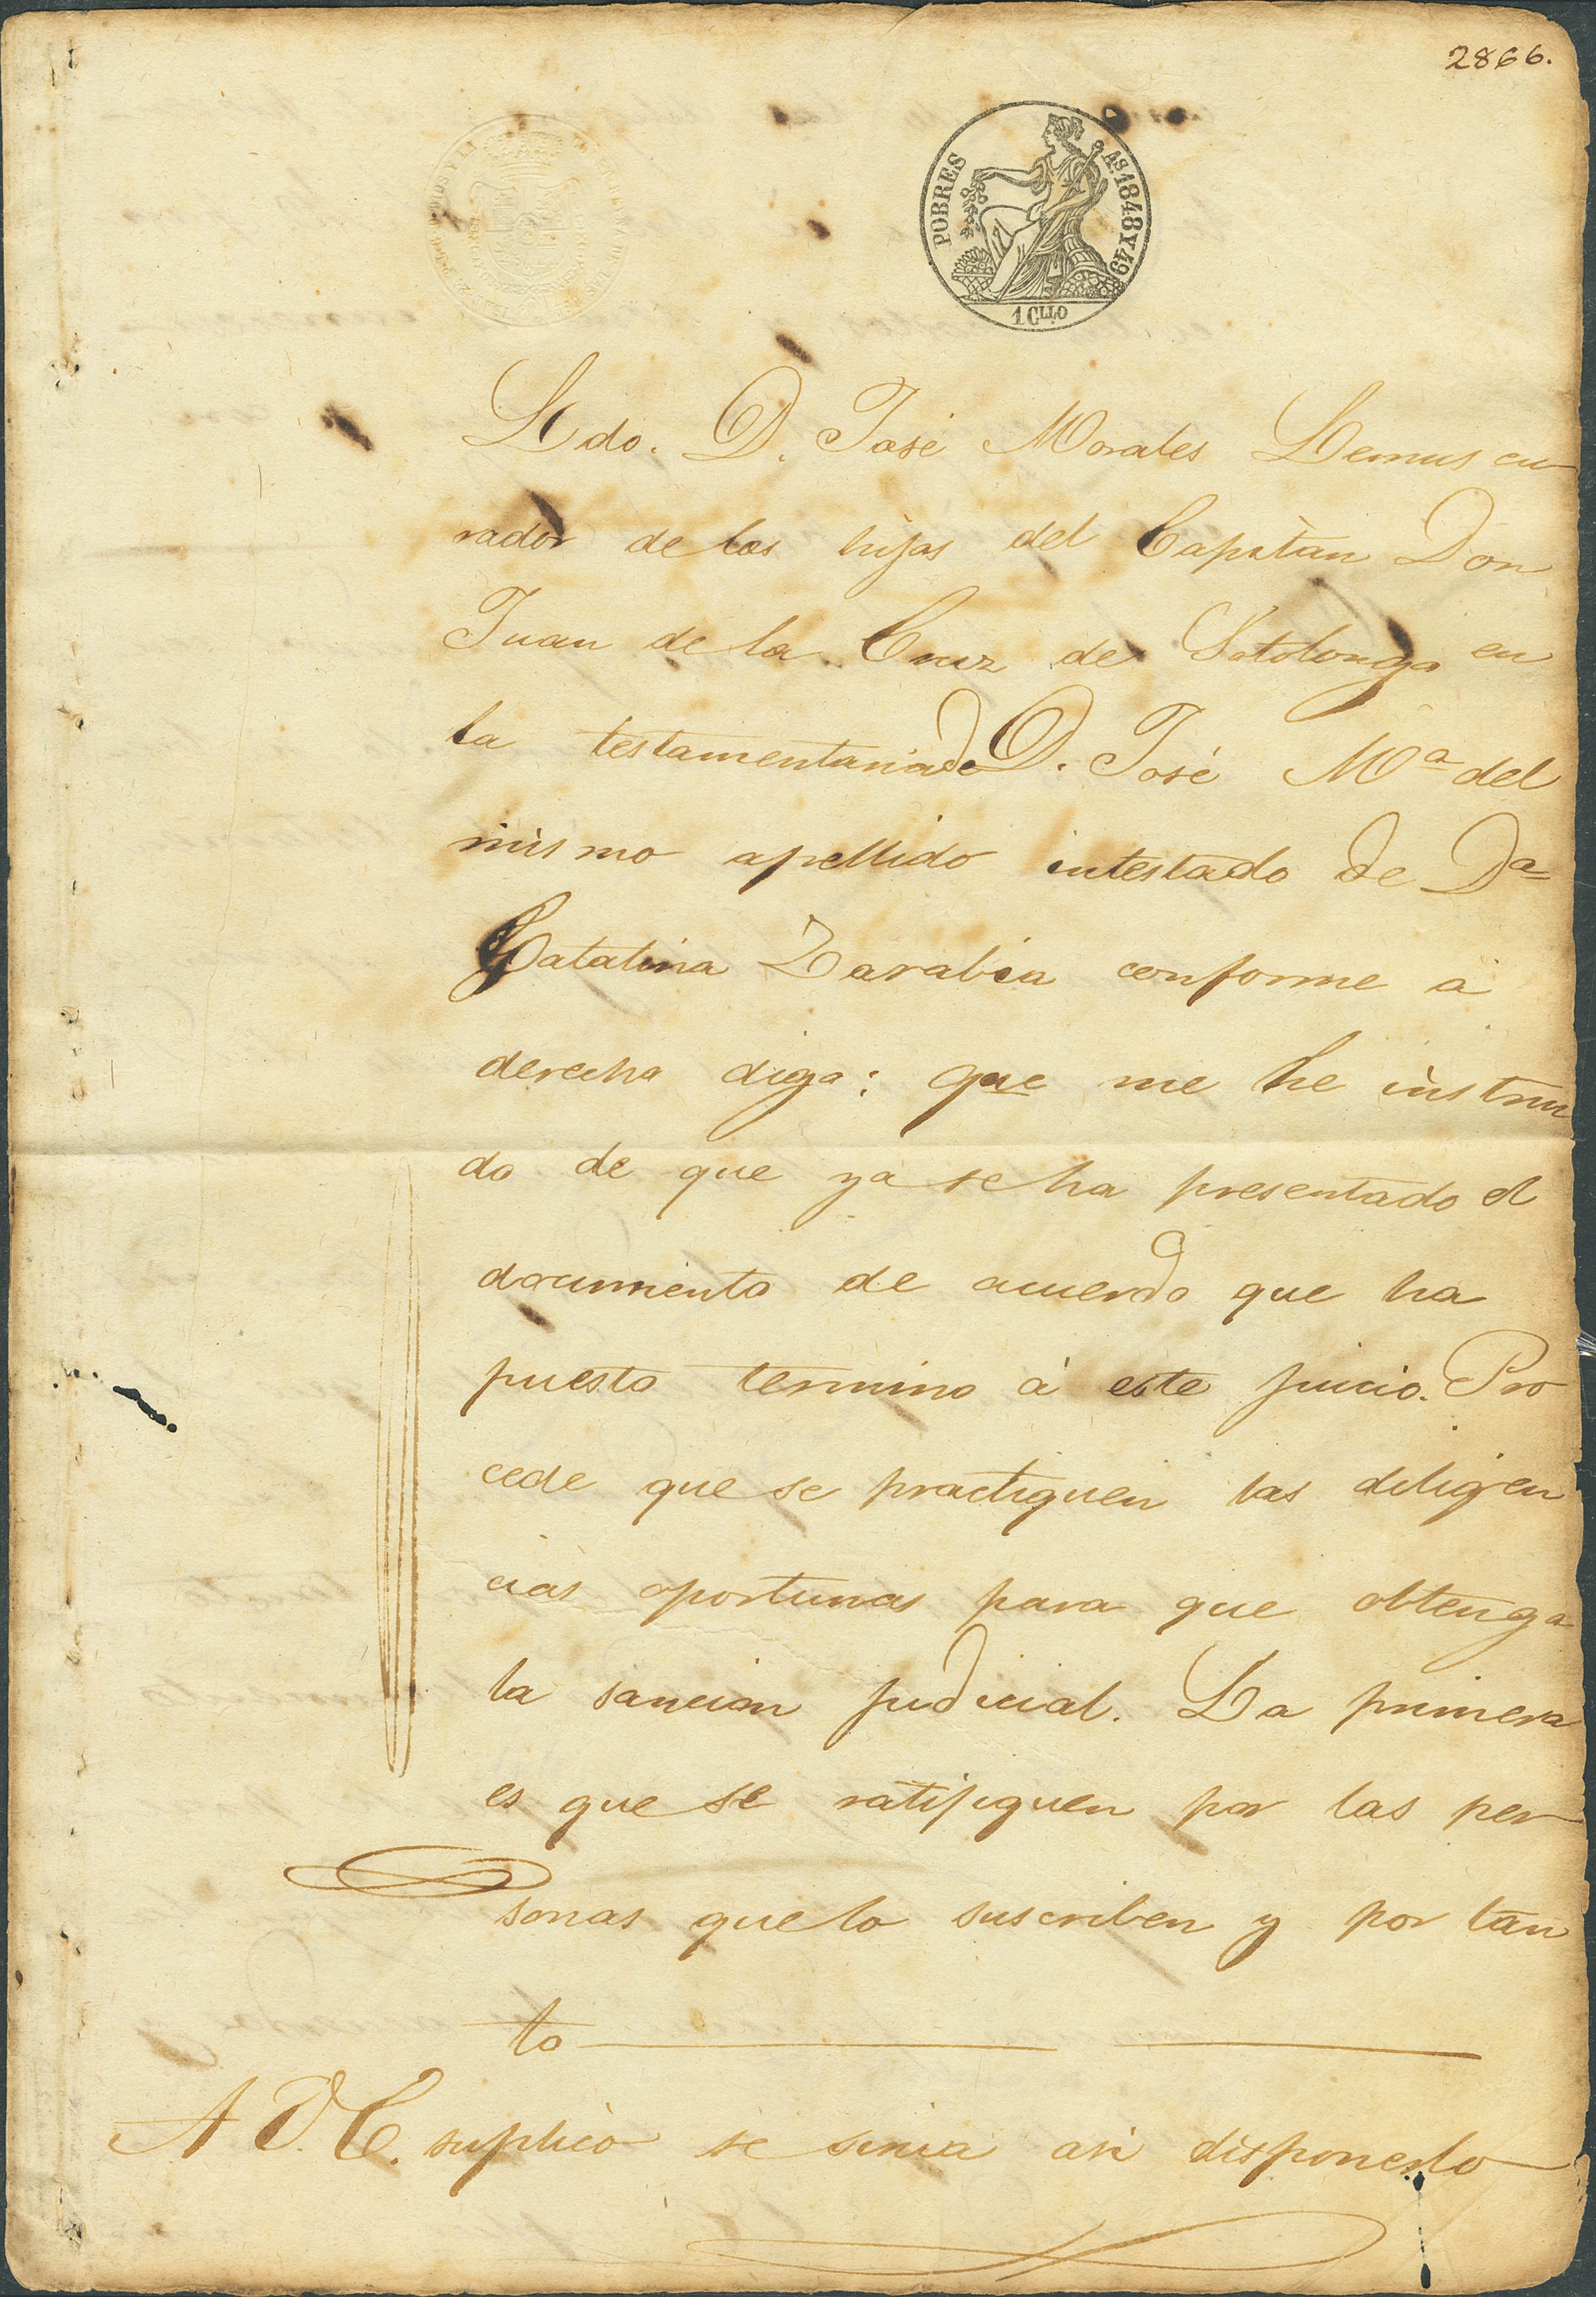 2866.
POBRES
AS. 1848 Y 49
1 CLLO
Ldo. D. José Morales Lemus cu
rador de los hijos del Capitan Don
Juan de la Cruz de Sotolongo en
la testamentaria de D. José Mª del
mismo apellido intestado de Dª
Catalina Zarabia conforme á
derecho digo: que me he instrui
do de que ya se ha presentado el
documento de acuerdo que ha
puesto termino á este juicio. Pro
cede que se practiquen las diligen
cias oportunas para que obtenga
la sancion judicial. La primera
es que se ratifiquen por las per
sonas que lo suscriben y por tan
to
A V. E. suplico se sirva asi disponerlo